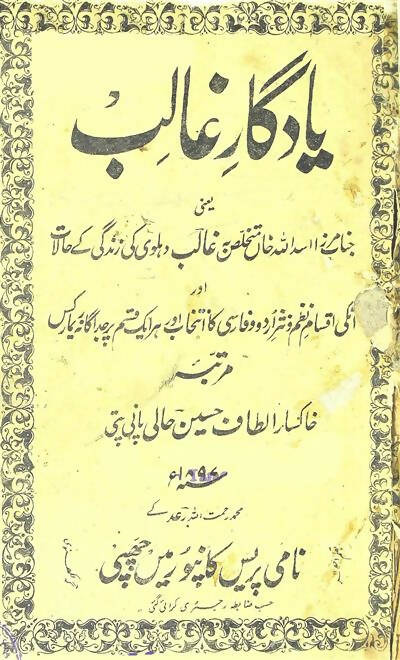 یادگار غالب
یعنی
جناب مرزا اسد اللہ خاں متخلص بہ غالب دہلوی کی زندگی کے حالات
اور
انکی اقسام نظم و نثر اردو و فارسی کا انتخاب اور ہر ایک قسم پر جداگانہ ریمارکس
مرتبہ
خاکسار الطاف حسین حالی پانی پتی
۱۸۹۷ء
محمد رحمت اللہ رعد کے
نامی پریس کانپور میں چھپی
حسب ضابطہ رجسٹری کرائی گئی